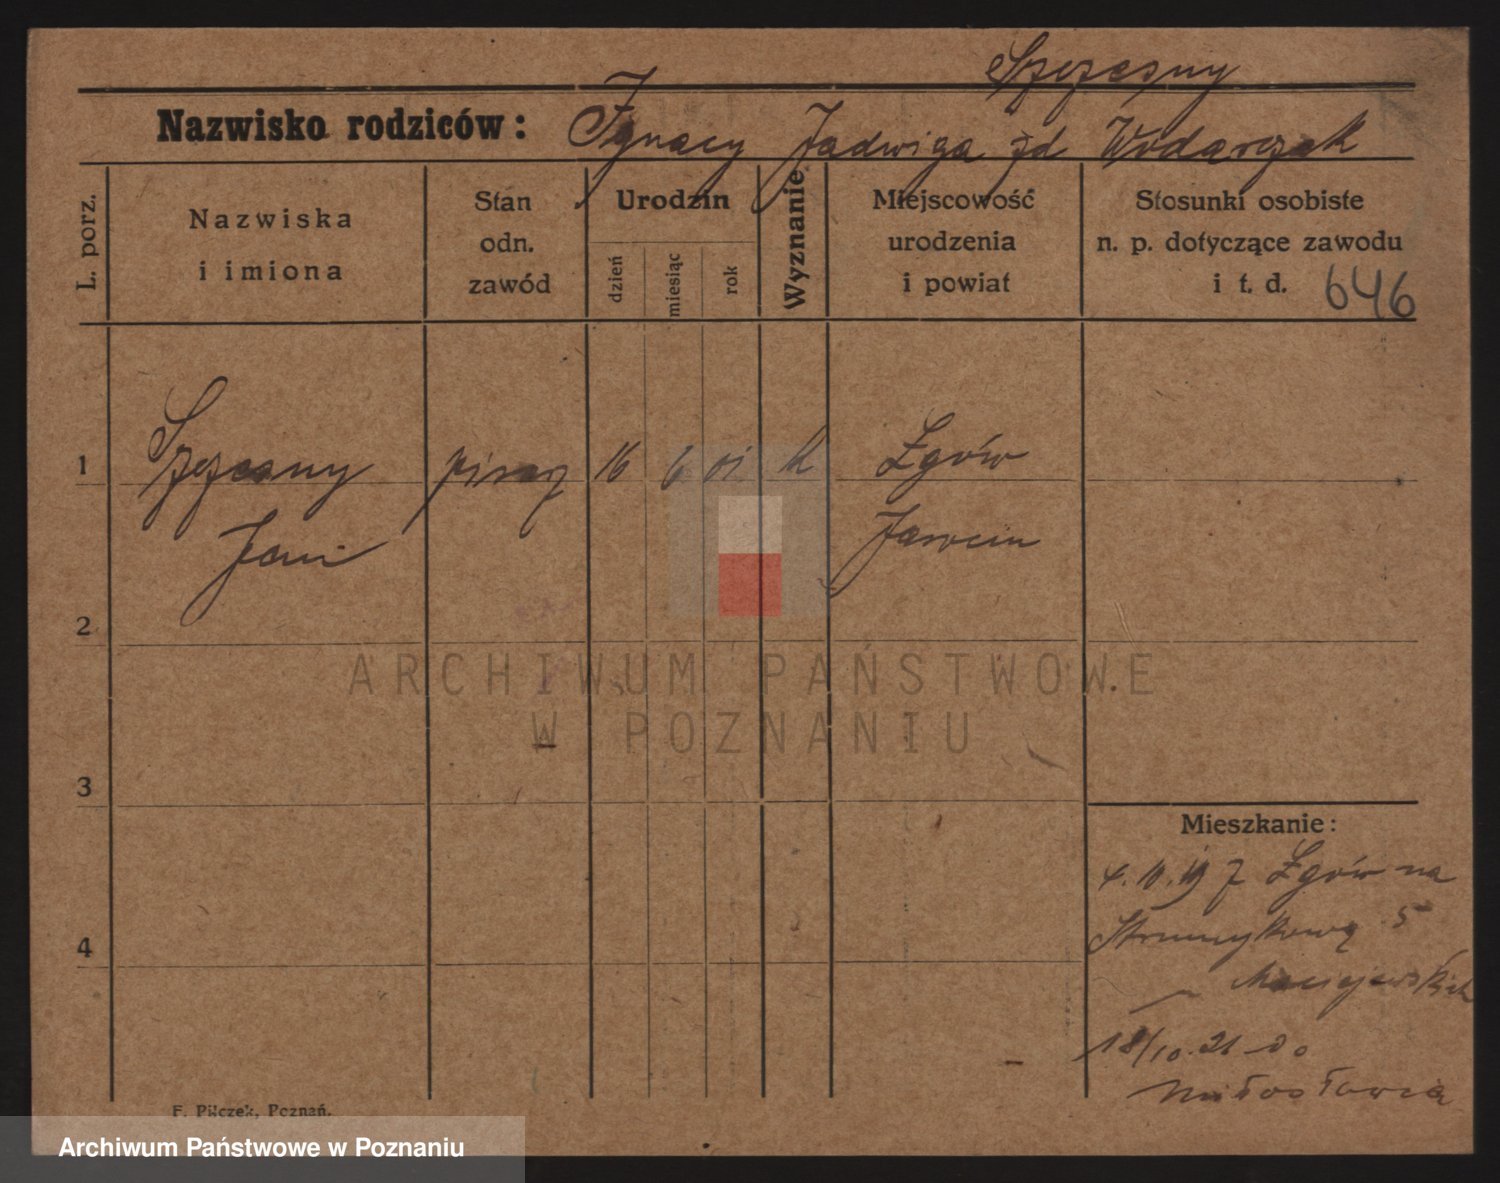 Szczesny
Nazwisko rodziców: Ignacy Jadwiga zd Wodarczak
L. porz.
Nazwiska
i imiona
Stan
odn.
zawód
Urodzin
dzień
miesiąc
rok
Wyznanie
Miejscowość
urodzenia
i powiat
Stosunki osobiste
n. p. dotyczące zawodu
i t. d. 646
1 Szczesny pisarz 16 6 01 k Żgów
Jan Jarocin
2
3
4
Mieszkanie:
4.10.19 z Żgów na
Strumykową 5
Maciejewskich
18/10.21 do
Miłosławia
F. Pilczek, Poznań.
ARCHIWUM PAŃSTWOWE
W POZNANIU
Archiwum Państwowe w Poznaniu